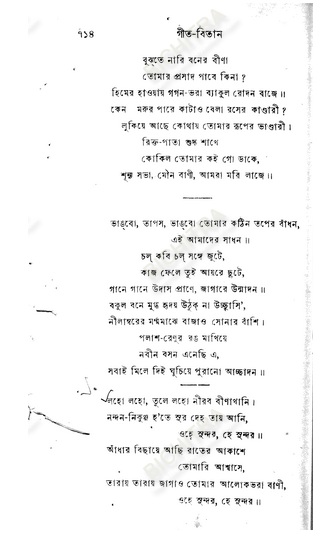 ৭১৪ গীত-বিতান
বুঝতে নারি বনের বীণা
তোমার প্রসাদ পাবে কিনা ?
হিমের হাওয়ায় গগন-ভরা ব্যাকুল রোদন বাজে ॥
কেন মরুর পারে কাটাও বেলা রসের কাণ্ডারী ?
লুকিয়ে আছে কোথায় তোমার রূপের ভাণ্ডারী ।
রিক্ত-পাতা শুষ্ক শাখে
কোকিল তোমার কই গো ডাকে,
শূন্য সভা, মৌন বাণী, আমরা মরি লাজে ॥
ভাঙ্‌বো, তাপস, ভাঙ্‌বো তোমার কঠিন তপের বাঁধন,
এই আমাদের সাধন ॥
চল্ কবি চল্ সঙ্গে জুটে,
কাজ ফেলে তুই আয়রে ছুটে,
গানে গানে উদাস প্রাণে, জাগারে উন্মাদন ॥
বকুল বনে মুগ্ধ হৃদয় উঠুক্ না উচ্ছ্বাসি',
নীলাম্বরের মর্ম্মমাঝে বাজাও সোনার বাঁশি ।
পলাশ-রেণুর রঙ মাখিয়ে
নবীন বসন এনেছি এ,
সবাই মিলে দিই ঘুচিয়ে পুরানো আচ্ছাদন ॥
লহো লহো, তুলে লহো নীরব বীণাখানি ।
নন্দন-নিকুঞ্জ হ'তে সুর দেহ তায় আনি,
ওহে সুন্দর, হে সুন্দর ॥
আঁধার বিছায়ে আছি রাতের আকাশে
তোমারি আশ্বাসে,
তারায় তারায় জাগাও তোমার আলোকভরা বাণী,
ওহে সুন্দর, হে সুন্দর ॥